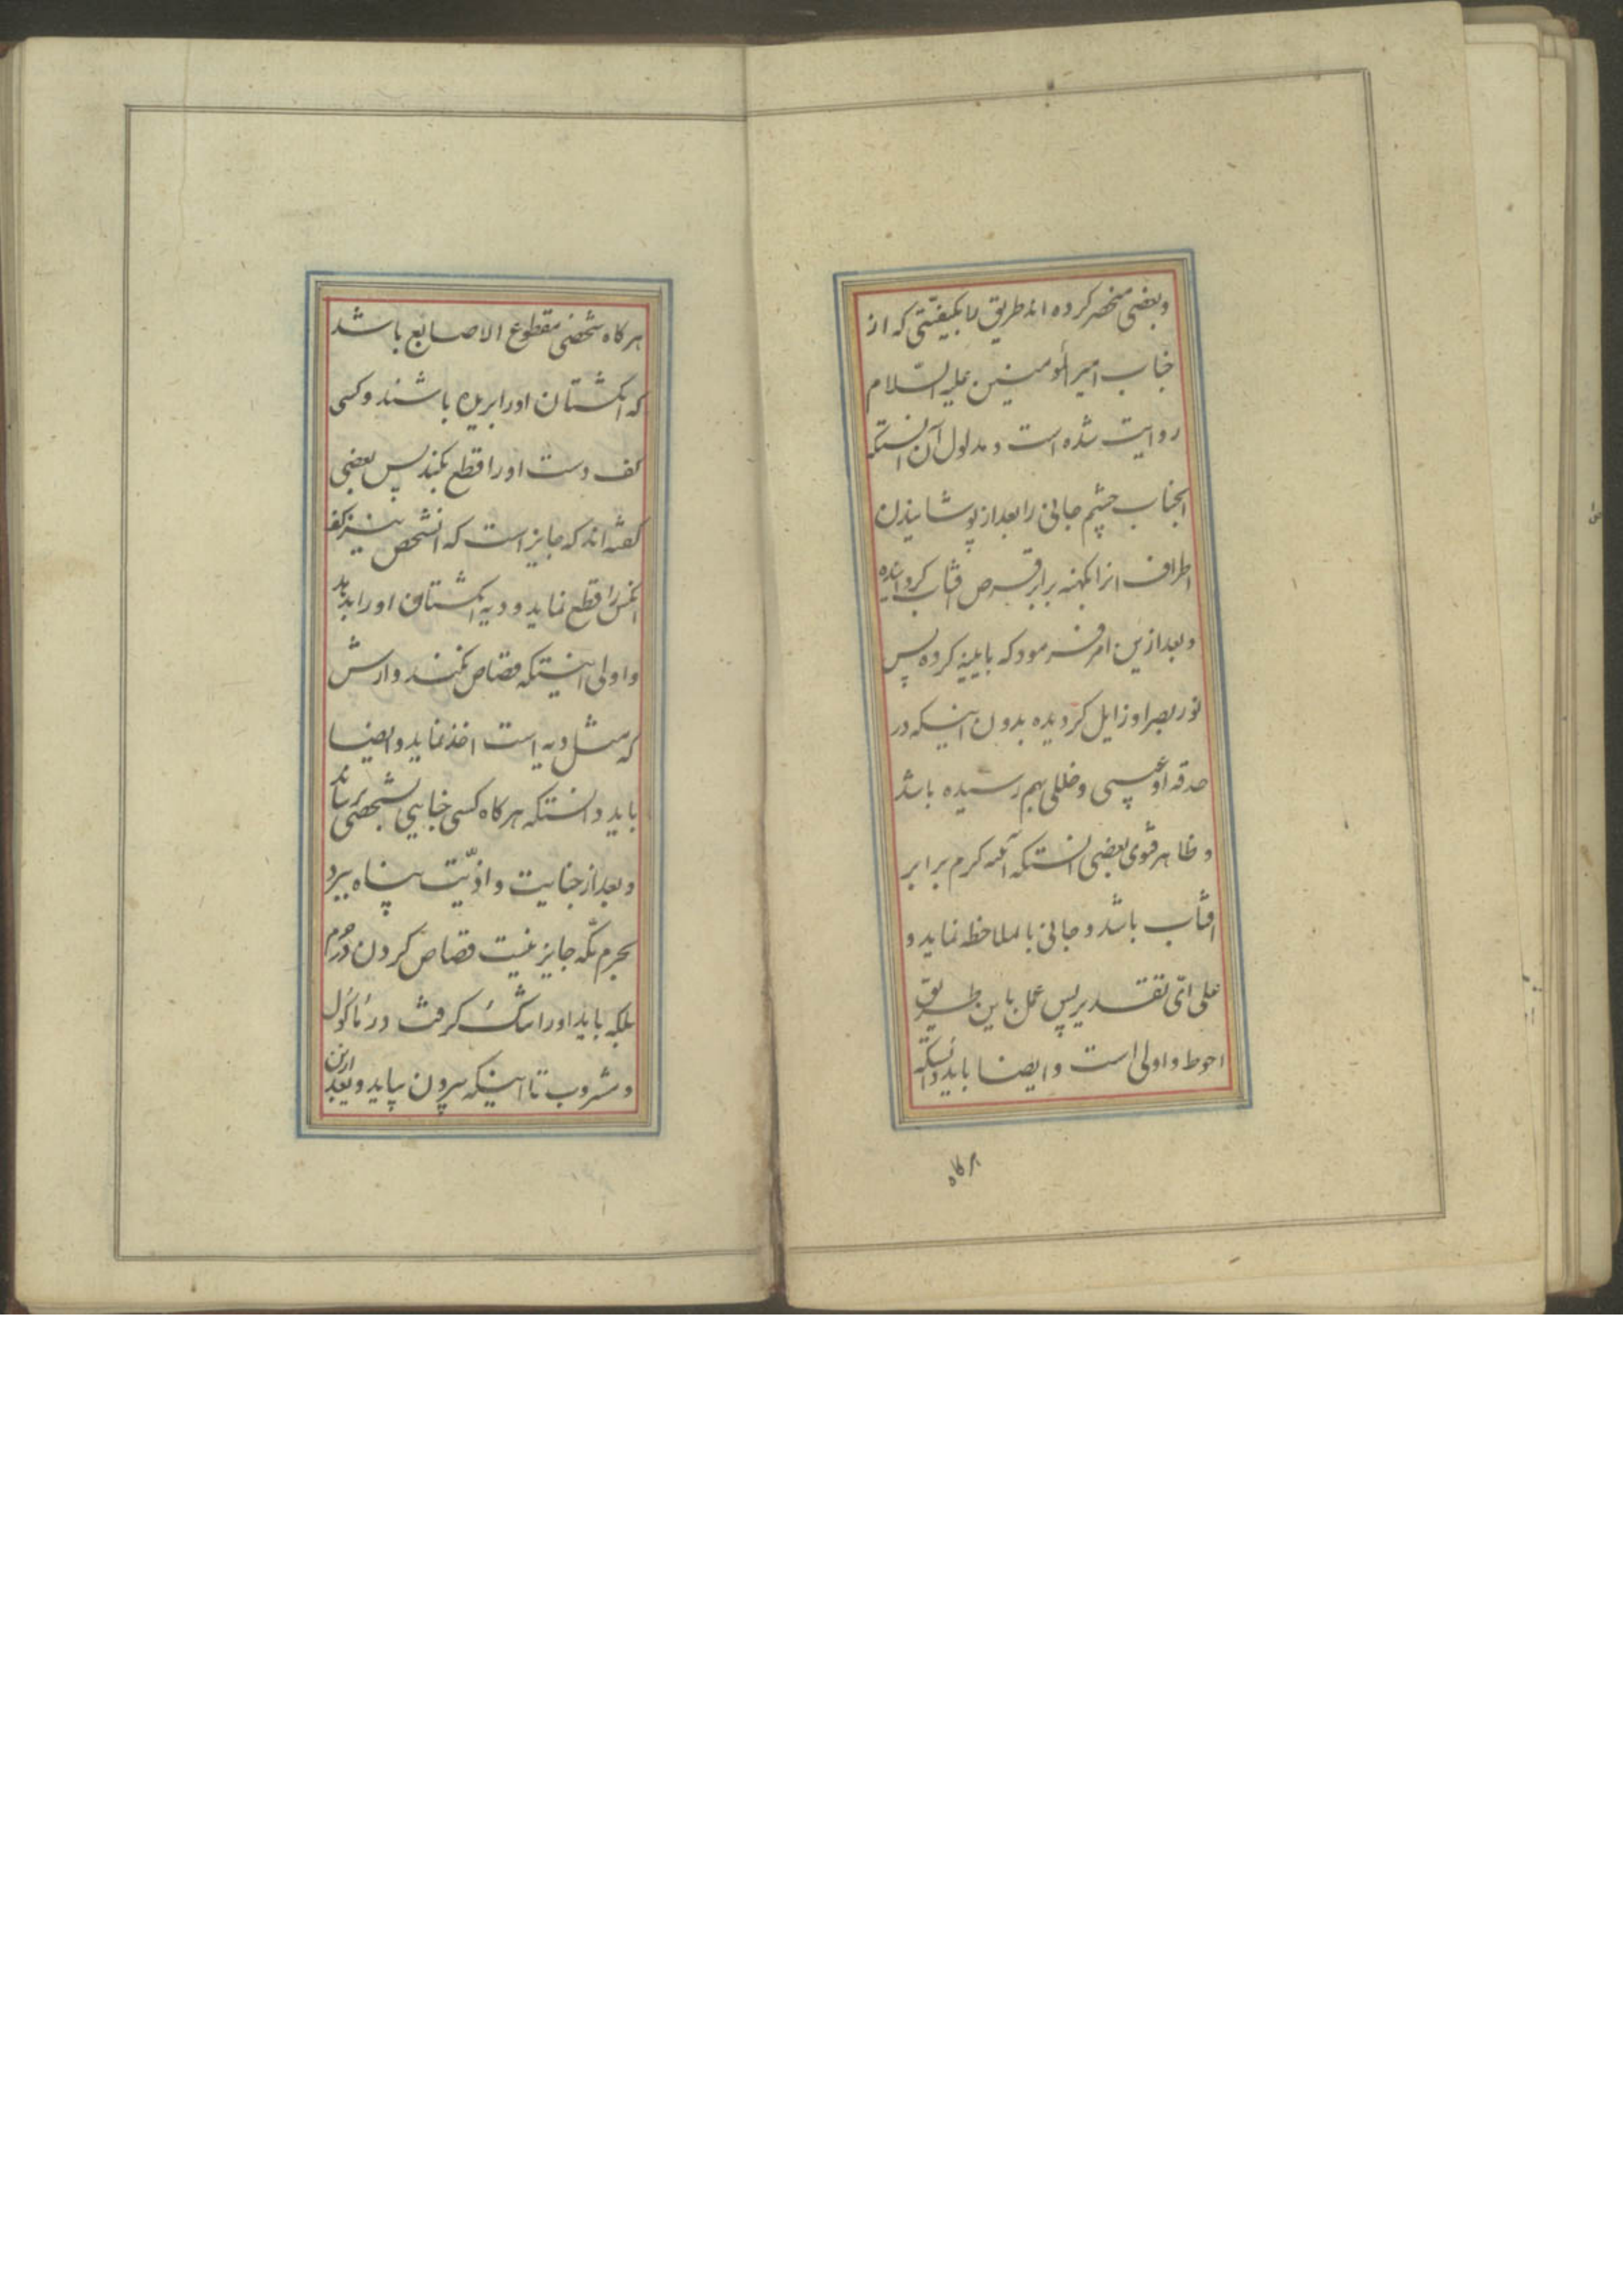 وبعضی منحصر کرده اند طریق را بکیفیتی که از
جناب امیرالمؤمنین علیه السّلام
روایت شده است و مدلول آن انستکه
انجناب چشم جانی را بعد از پوشانیدن
اطراف انرا بپنبه برابر قرص افتاب کردانیده
وبعد ازین امر فرمود که باینه کرده پس
نور بصر او زایل کردیده بدون اینکه در
حدقه او عیبی و خللی بهم رسیده باشد
و ظاهر فتوی بعضی انستکه آینه کرم برابر
افتاب باشد و جانی باملاحظه نماید و
علی ایّ تقدیر پس عمل باین طریق
احوط و اولی است وایضا باید دانستکه
هرکاه
هرکاه شخصی مقطوع الاصابع باشد
که انکشتان اورا بریده باشند و کسی
کف دست اورا قطع بکند پس بعضی
کفته اند که جایز است که انشخص نیز کف
انکس را قطع نماید و دیه انکشتان اورا بدهد
و اولی اینستکه قصاص نکنند وارش
که مثل دیه است اخذ نماید وایضا
باید دانستکه هرکاه کسی جنایتی بشخصی برساند
وبعد از جنایت و اذیّت پناه ببرد
بحرم مکّه جایز نیست قصاص کردن در حرم
بلکه باید اورا تنک کرفت در مأکول
و مشروب تا اینکه بیرون بیاید و بعد ازین